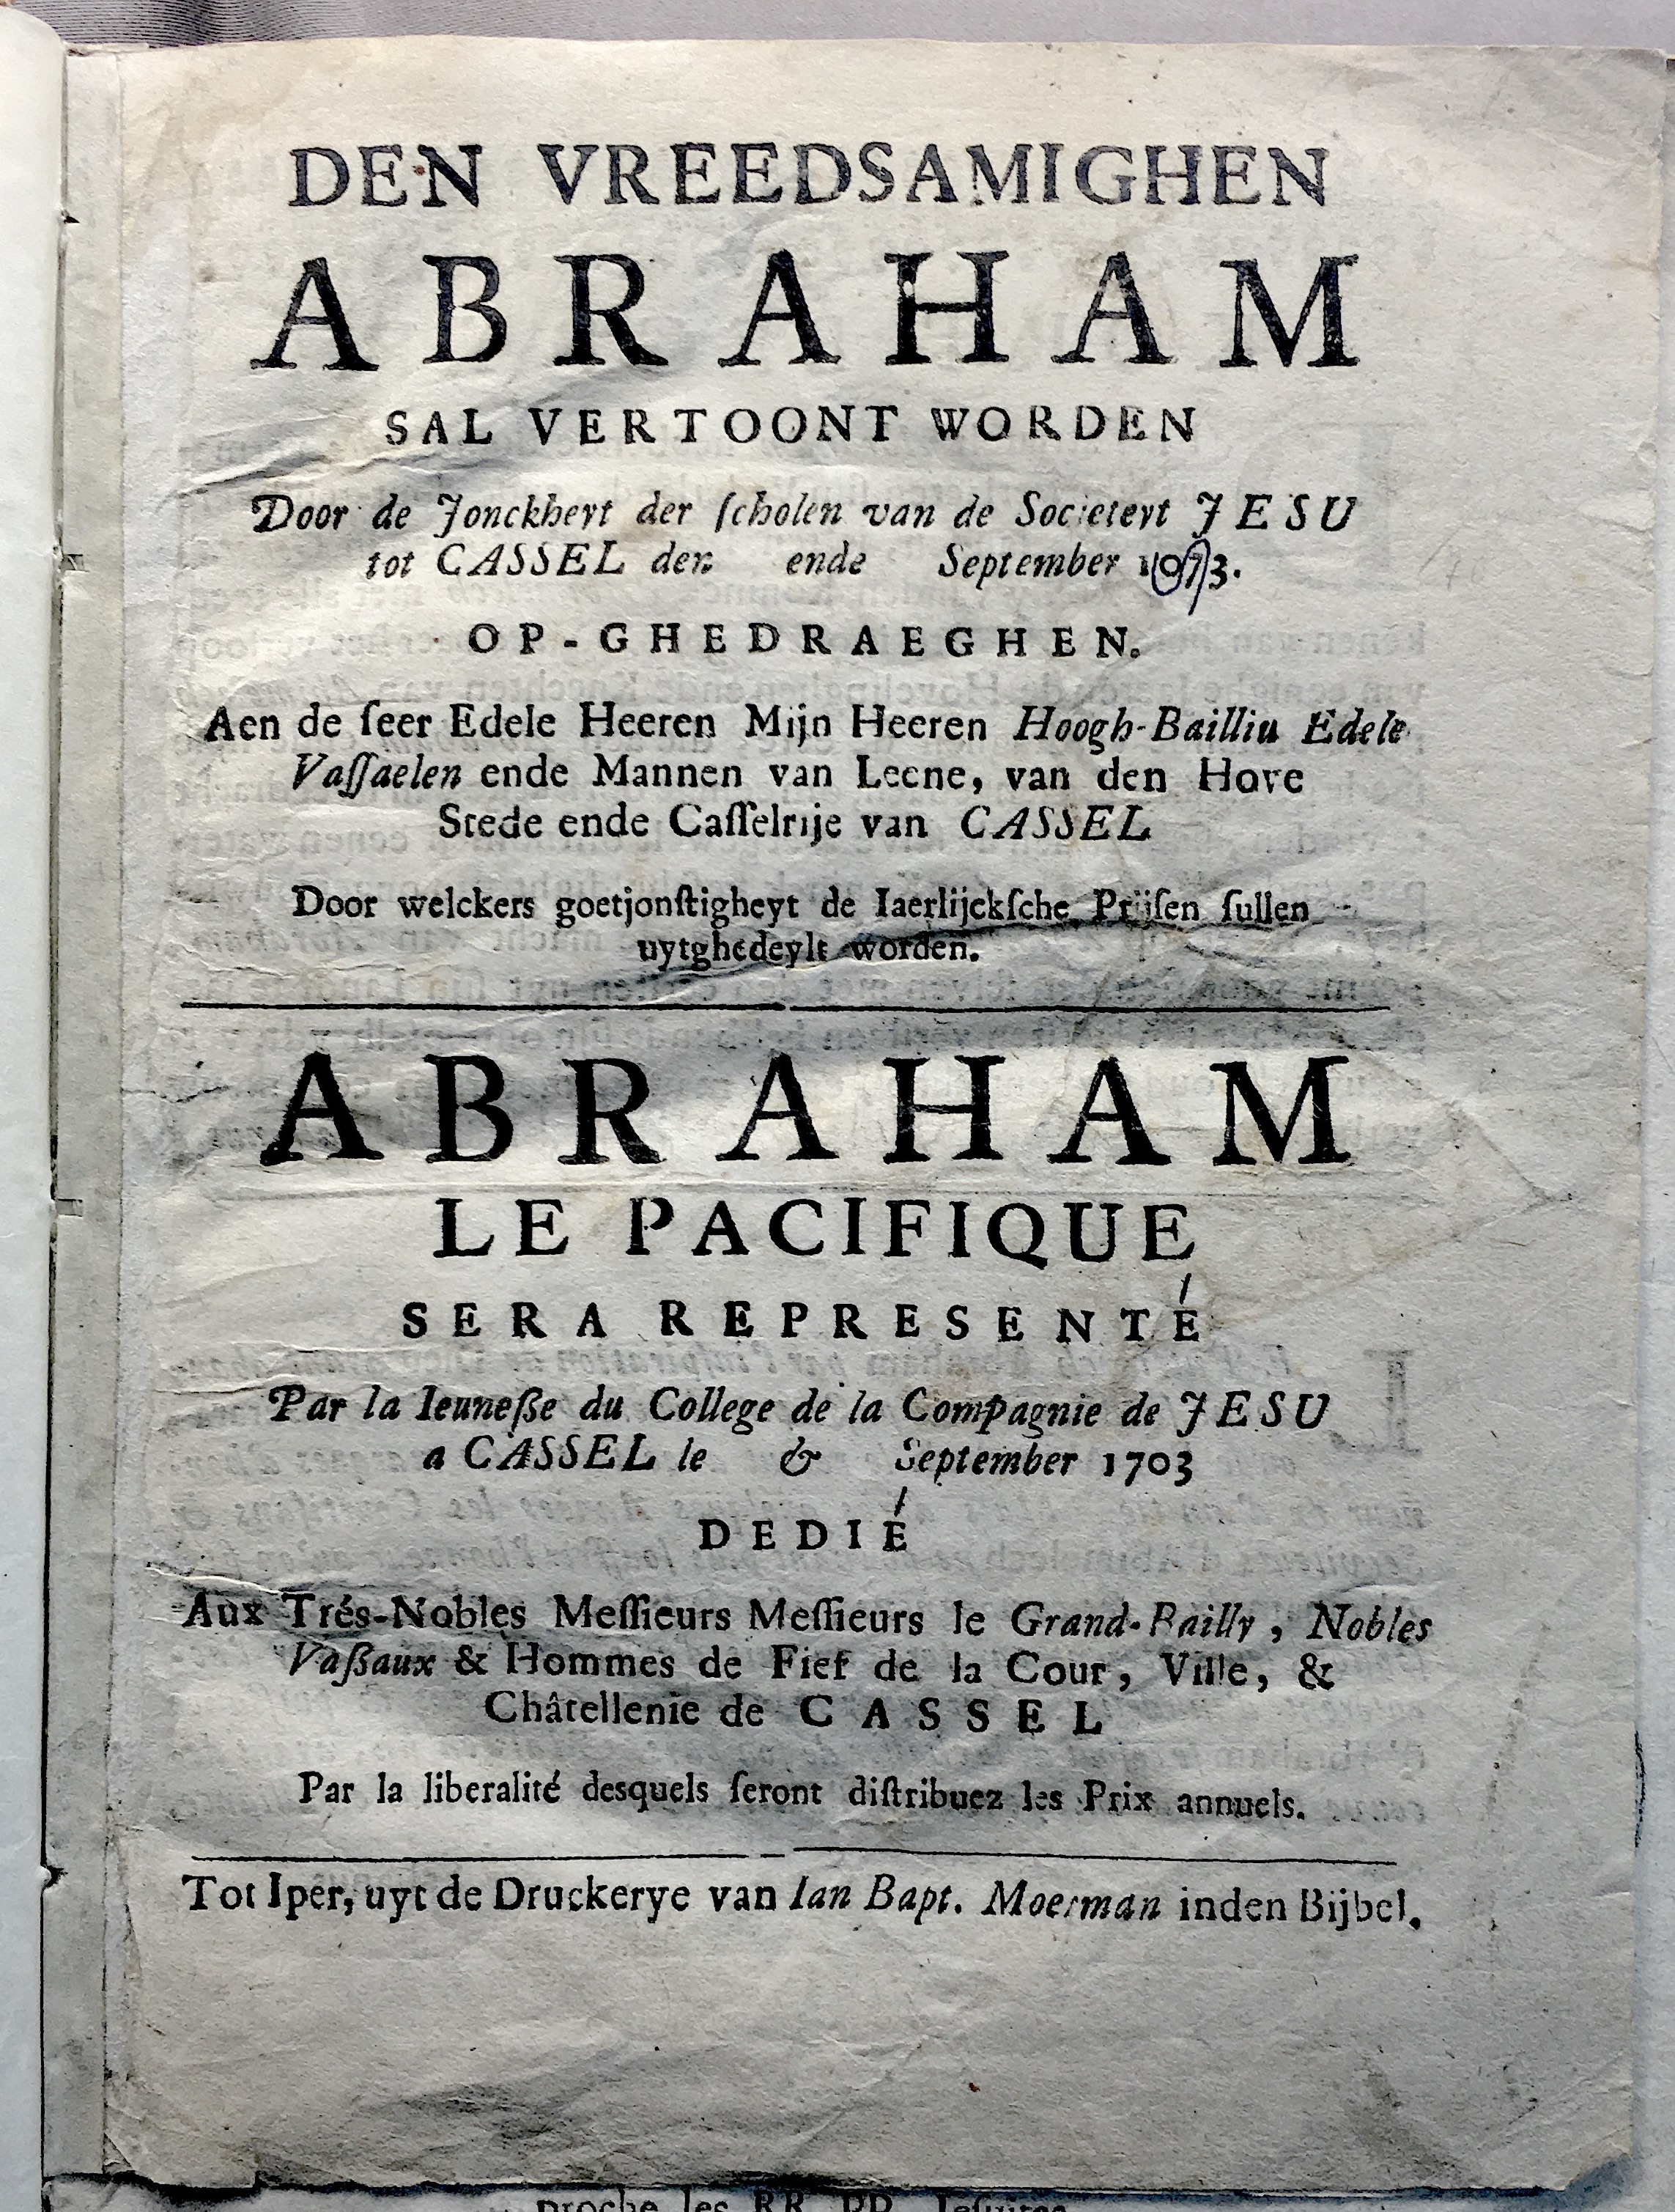 DEN VREEDSAMIGHEN
ABRAHAM
SAL VERTOONT WORDEN
Door de Jonckheyt der ſcholen van de Societeyt JESU
tot CASSEL den ende September 1073.
OP-GHEDRAEGHEN.
Aen de ſeer Edele Heeren Mijn Heeren Hoogh-Bailliu Edele
Vaſſaelen ende Mannen van Leene, van den Hove
Stede ende Caſſelrije van CASSEL
Door welckers goetjonſtigheyt de Iaerlijckſche Prijſen ſullen
uytghedeylt worden.
ABRAHAM
LE PACIFIQUE
SERA REPRESENTÉ
Par la Ieuneſſe du College de la Compagnie de JESU
a CASSEL le & September 1703
DEDIÉ
Aux Trés-Nobles Meſſieurs Meſſieurs le Grand-Bailly, Nobles
Vaſſaux & Hommes de Fief de la Cour, Ville, &
Châtellenie de CASSEL
Par la liberalité desquels ſeront diſtribuez les Prix annuels.
Tot Iper, uyt de Druckerye van Ian Bapt. Moerman inden Bijbel.
proche les RR. PP. Jeſuites